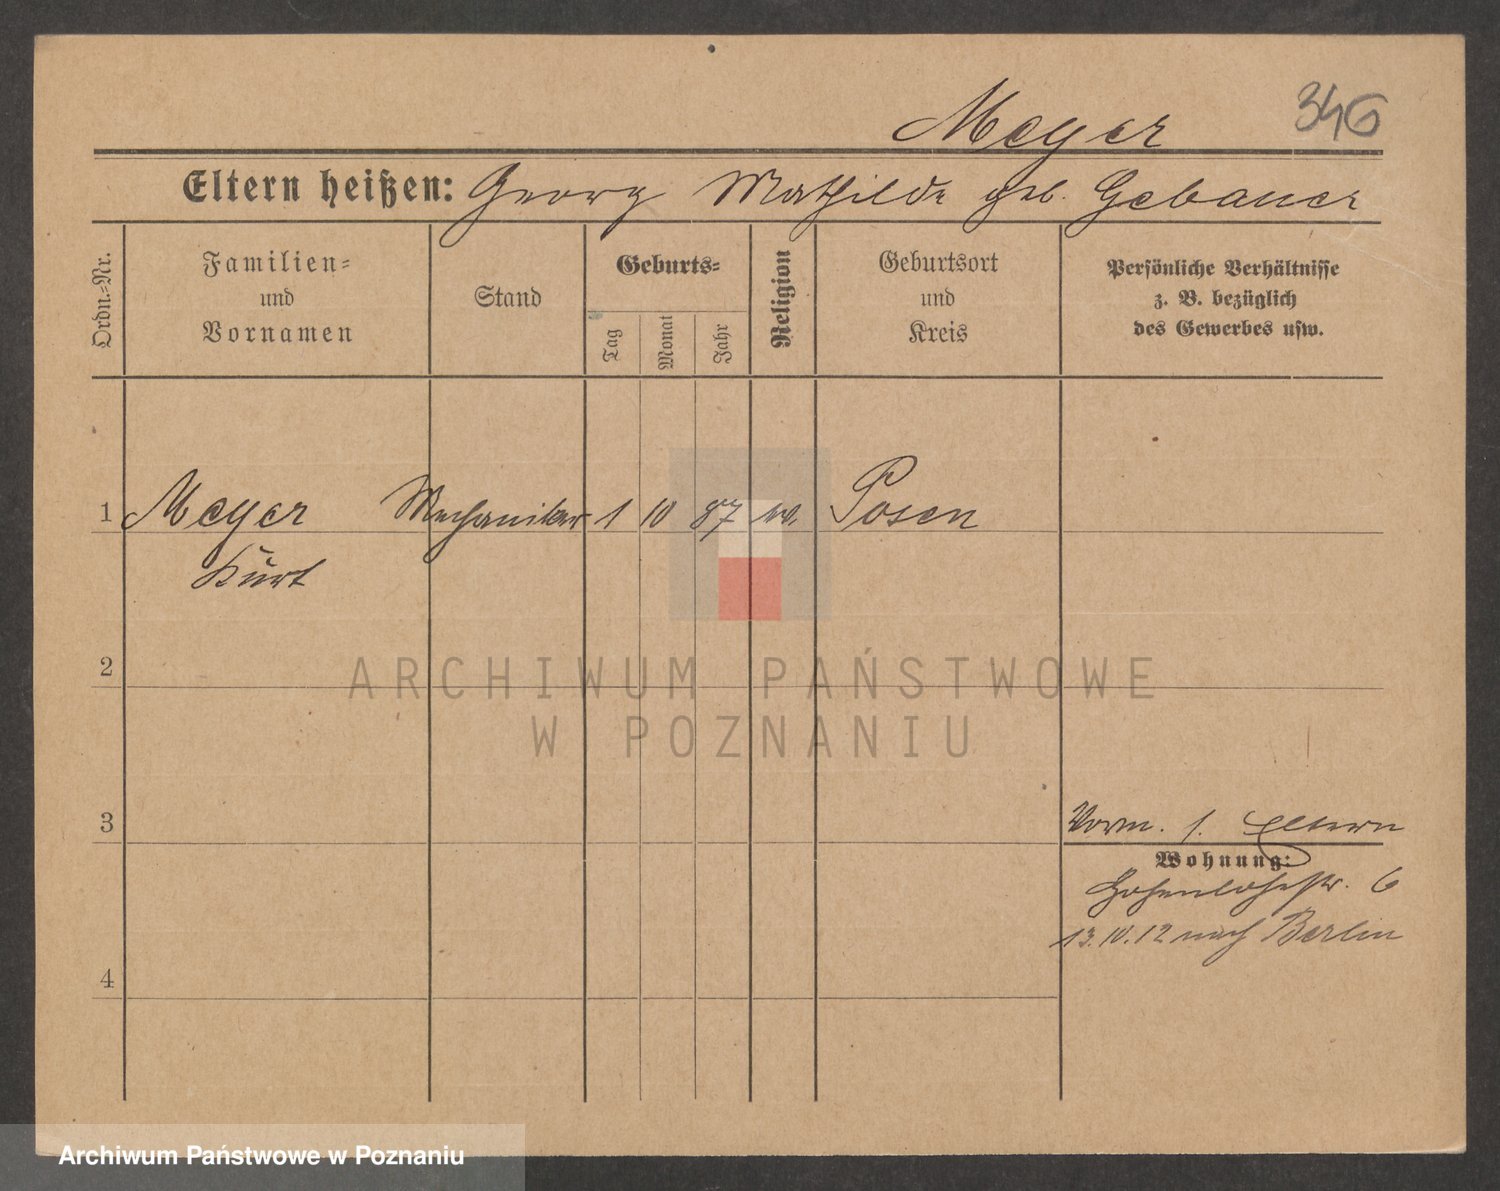 Meyer 346
Eltern heißen: Georg Mathilde geb. Gebauer
Ordn.-Nr.
Familien-
und
Vornamen
Stand
Geburts-
Tag
Monat
Jahr
Religion
Geburtsort
und
Kreis
Persönliche Verhältnisse
z. B. bezüglich
des Gewerbes usw.
1 Meyer Mechaniker 1 10 87 ev. Posen
Kurt
2
ARCHIWUM PAŃSTWOWE
W POZNANIU
3
Vorm. s. Eltern
Wohnung:
Hohenlohestr. 6
13.10.12 nach Berlin
4
Archiwum Państwowe w Poznaniu